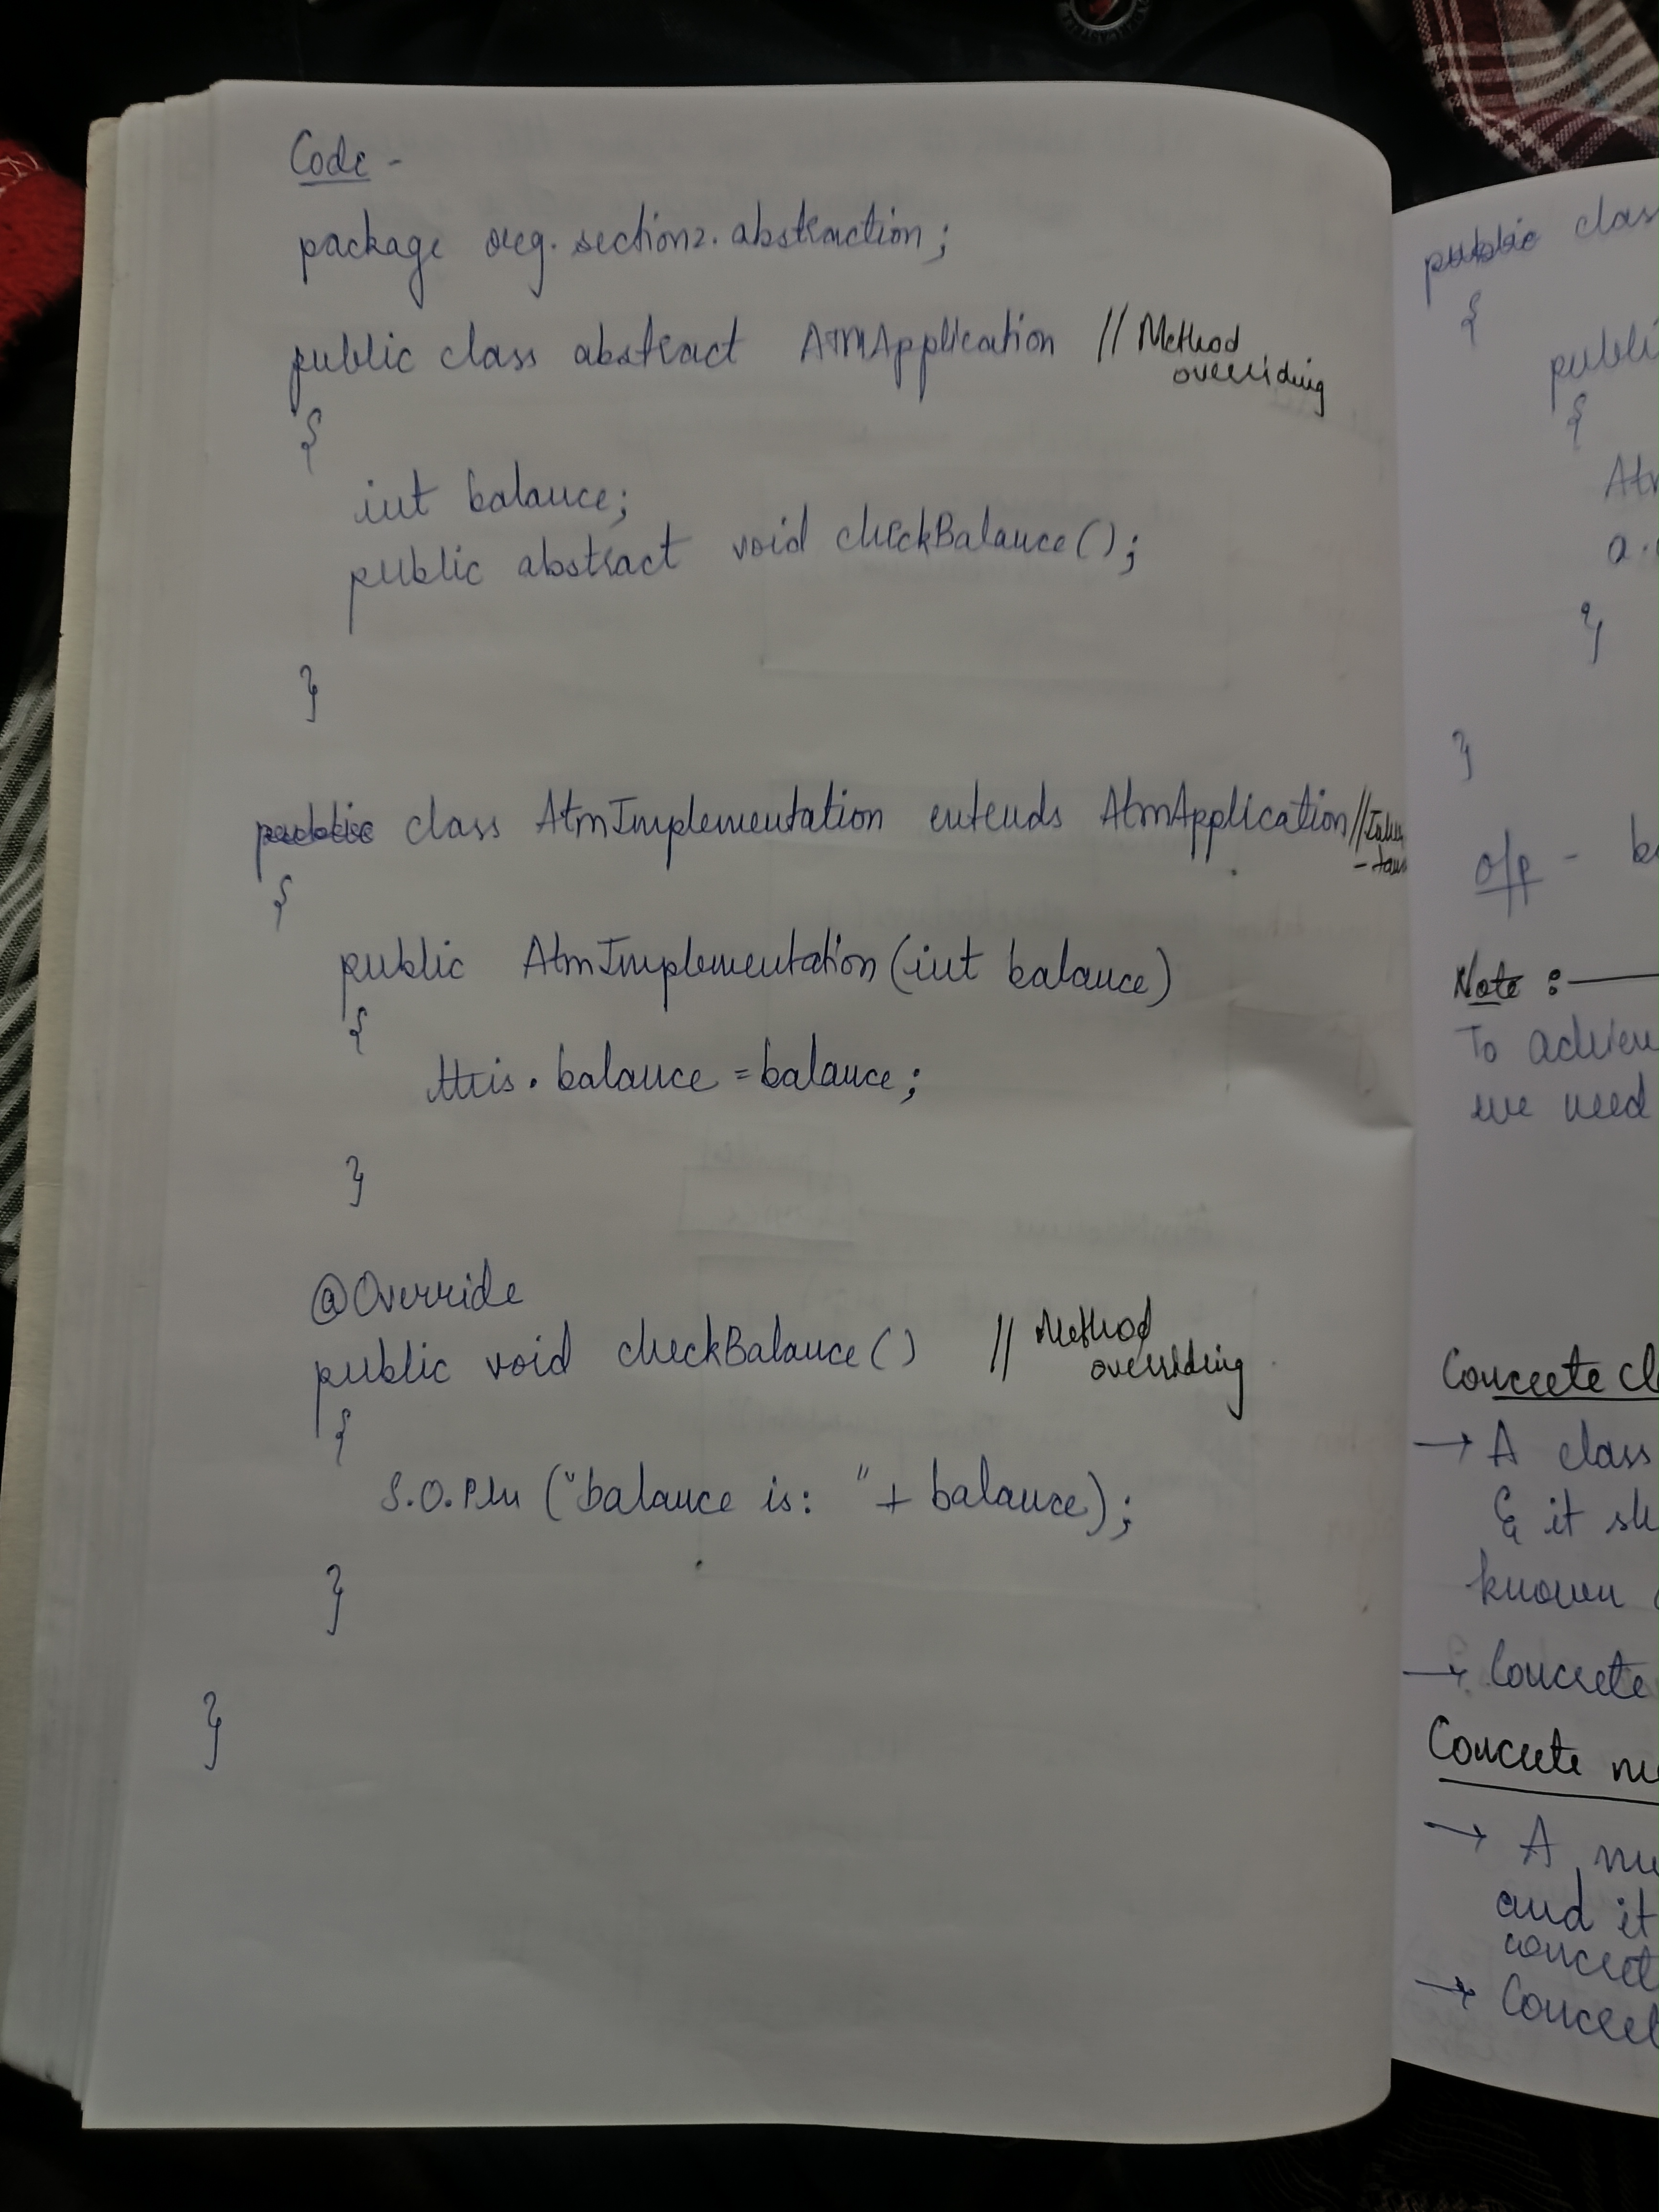 Code -
package org.section2.abstraction;
public class abstract AtmApplication // Method
overriding
{
int balance;
public abstract void checkBalance();
}
public class AtmImplementation extends AtmApplication //
{
public AtmImplementation (int balance)
{
this.balance = balance;
}
@Override
public void checkBalance() // Method
overriding
{
S.O.Pln ("balance is: " + balance);
}
}
public clas
{
publi
{
Atm
a.
}
}
o/p - b
Note :
To achiev
we need
Concrete cl
→ A class
& it sh
known
→ Concrete
Concrete me
→ A me
and it
concret
→ Concret